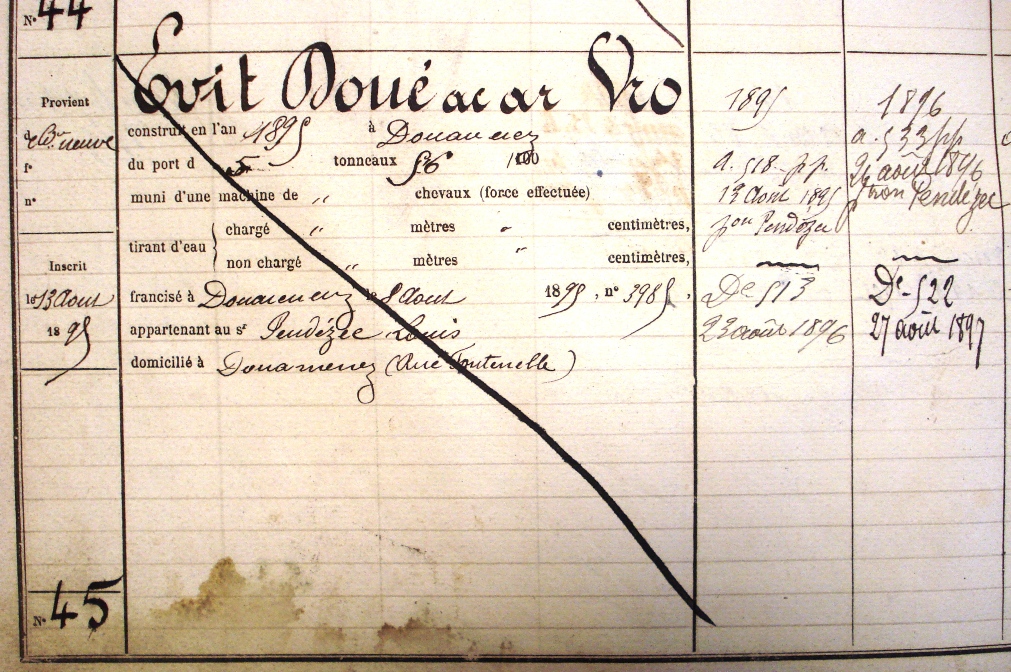 N° 44
Evit Doué ac ar Vro
Provient
de Bon neuve
f°
n°
Inscrit
le 13 Aout
1895
N° 45
construit en l'an 1895 à Douarnenez
du port d 5 tonneaux 56 100
muni d'une machine de " chevaux (force effectuée)
tirant d'eau
chargé " mètres " centimètres,
non chargé " mètres " centimètres,
francisé à Douarnenez le 8 Aout 1895, n° 3985,
appartenant au sr Pendézec Louis
domicilié à Douarnenez (Rue Fontenelle)
1895
a. 518 pp.
13 Août 1895
pon Pendézec
De 513
23 août 1896
1896
a. 533 pp
24 août 1896
ptron Pendézec
De 522
27 août 1897